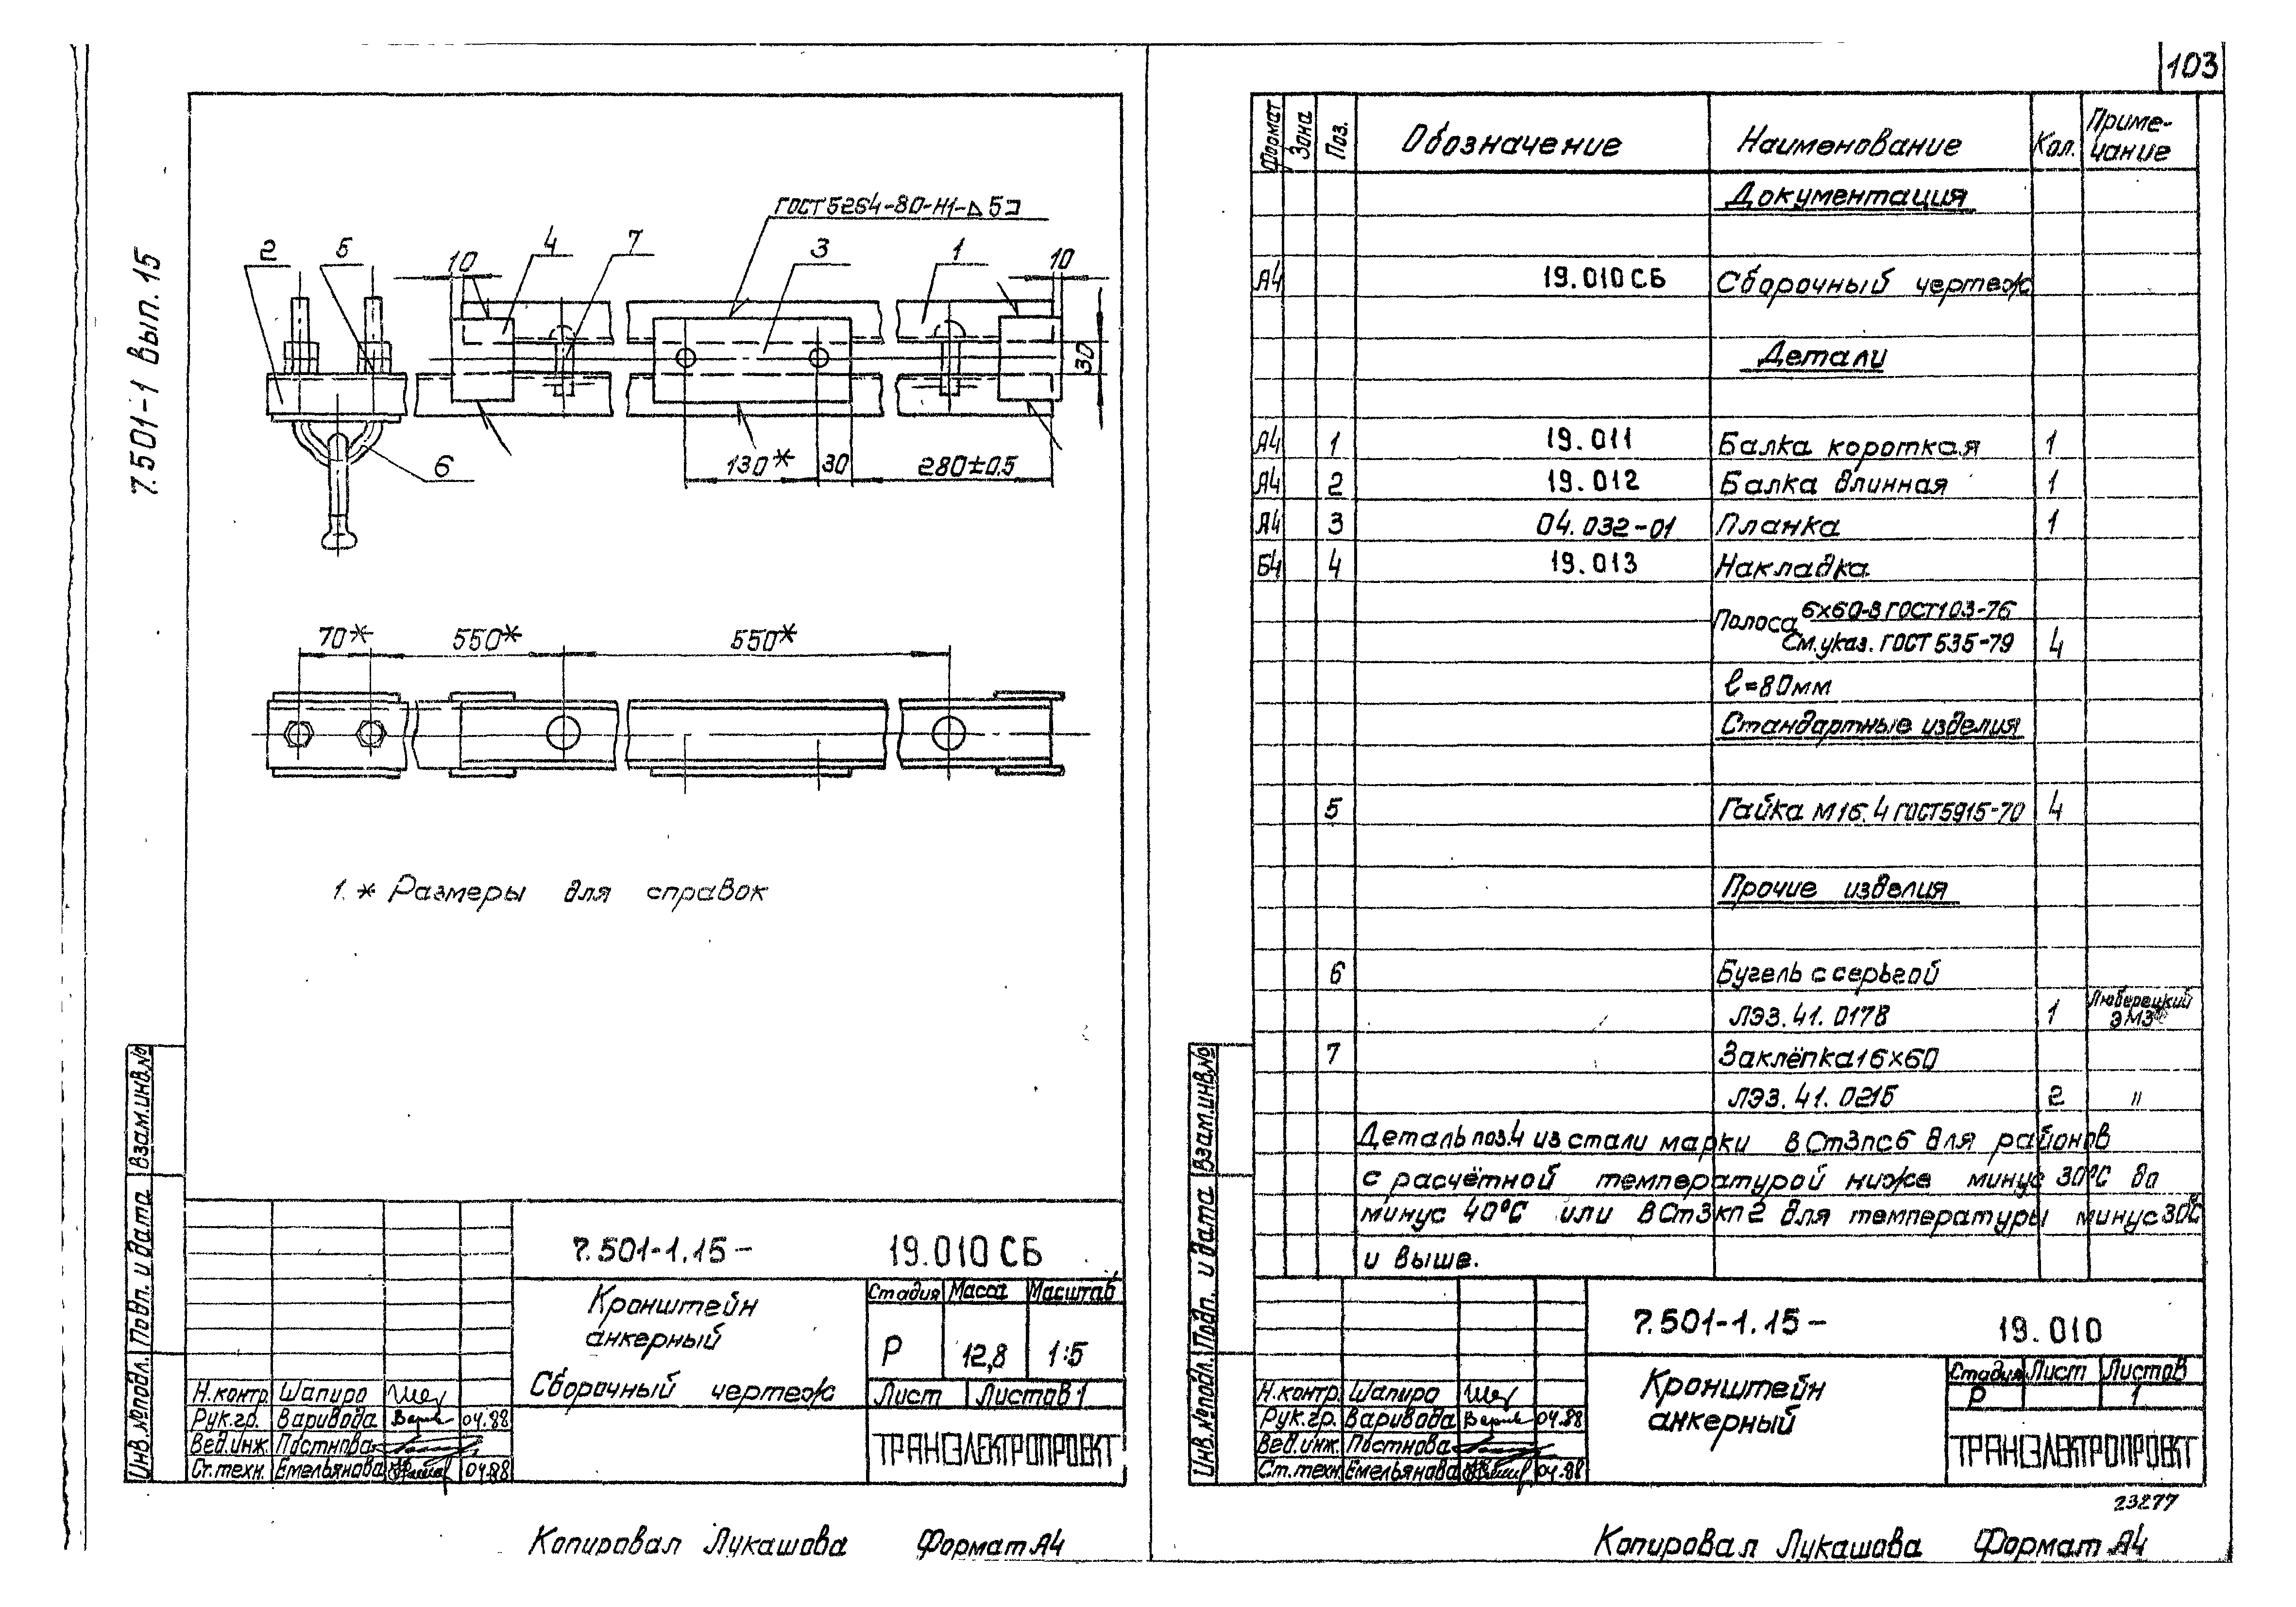 103
7.501-1 Вып. 15
ГОСТ 5264-80-Н1-⊿5⊐
2 5 10 4 7 3 1 10
30
6 130* 30 280±0,5
70* 550* 550*
1. * Размеры для справок
Взам.инв.№
Подп. и дата
Инв.№подл.
7.501-1.15- 19.010 СБ
Кронштейн
анкерный
Сборочный чертеж
Стадия Масса Масштаб
Р 12,8 1:5
Лист Листов 1
ТРАНСЭЛЕКТРОПРОЕКТ
Н.контр. Шапиро
Рук.гр. Варивода 04.88
Вед.инж. Постнова
Ст.техн. Емельянова 04.88
Копировал Лукашова Формат А4
Формат Зона Поз. Обозначение Наименование Кол. Приме-
чание
Документация
А4 19.010 СБ Сборочный чертеж
Детали
А4 1 19.011 Балка короткая 1
А4 2 19.012 Балка длинная 1
А4 3 04.032-01 Планка 1
Б4 4 19.013 Накладка
Полоса 6х60-В ГОСТ 103-76
См.указ. ГОСТ 535-79 4
ℓ=80мм
Стандартные изделия
5 Гайка М16.4 ГОСТ5915-70 4
Прочие изделия
6 Бугель с серьгой
ЛЭЗ.41.0178 1 Люберецкий
ЭМЗ
7 Заклёпка 16х60
ЛЭЗ.41.0215 2 "
Деталь поз.4 из стали марки ВСт3пс6 для районов
с расчётной температурой ниже минус 30°С до
минус 40°С или ВСт3кп2 для температуры минус 30°С
и выше.
Взам.инв.№
Подп. и дата
Инв.№подл.
7.501-1.15- 19.010
Кронштейн
анкерный
Стадия Лист Листов
Р 1
ТРАНСЭЛЕКТРОПРОЕКТ
Н.контр. Шапиро
Рук.гр. Варивода 04.88
Вед.инж. Постнова
Ст.техн. Емельянова 04.88
23277
Копировал Лукашова Формат А4